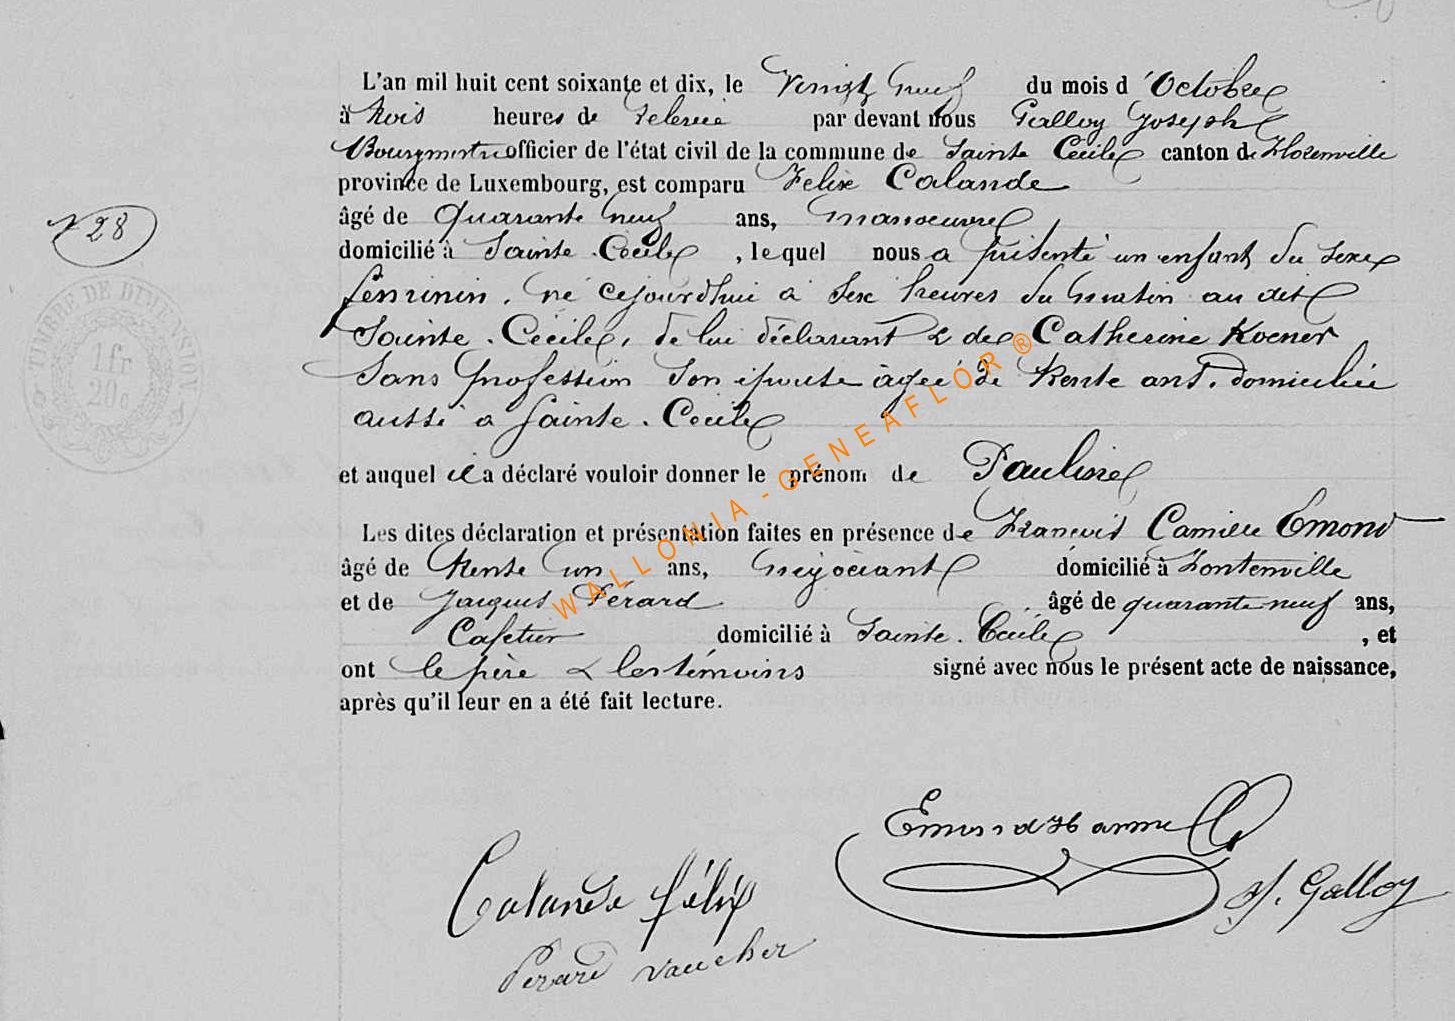 L'an mil huit cent soixante et dix, le Vingt neuf du mois d'Octobre
à trois heures de relevée par devant nous Galloy Joseph
Bourgmestre officier de l'état civil de la commune de Sainte Cécile canton de Florenville
province de Luxembourg, est comparu Felix Calande
âgé de quarante neuf ans, manoeuvre,
N° 28
domicilié à Sainte-Cécile, lequel nous a présenté un enfant du sexe
féminin, né cejourd'hui à six heures du matin au dit
TIMBRE DE DIMENSION
1 fr
20 c
Sainte-Cécile, de lui déclarant & de Catherine Koener
Sans profession son épouse âgée de trente ans, domiciliée
aussi à Sainte-Cécile
et auquel il a déclaré vouloir donner le prénom de Pauline
Les dites déclaration et présentation faites en présence de Francois Camille Emond
âgé de trente un ans, négociant domicilié à Fontenville
et de Jacques Pérard âgé de quarante neuf ans,
Cafetier domicilié à Sainte-Cécile, et
ont le père & les témoins signé avec nous le présent acte de naissance,
après qu'il leur en a été fait lecture.
WALLONIA-GENEAFLOR®
Emond
Calande félix
J. Galloy
Pérard Vaucher